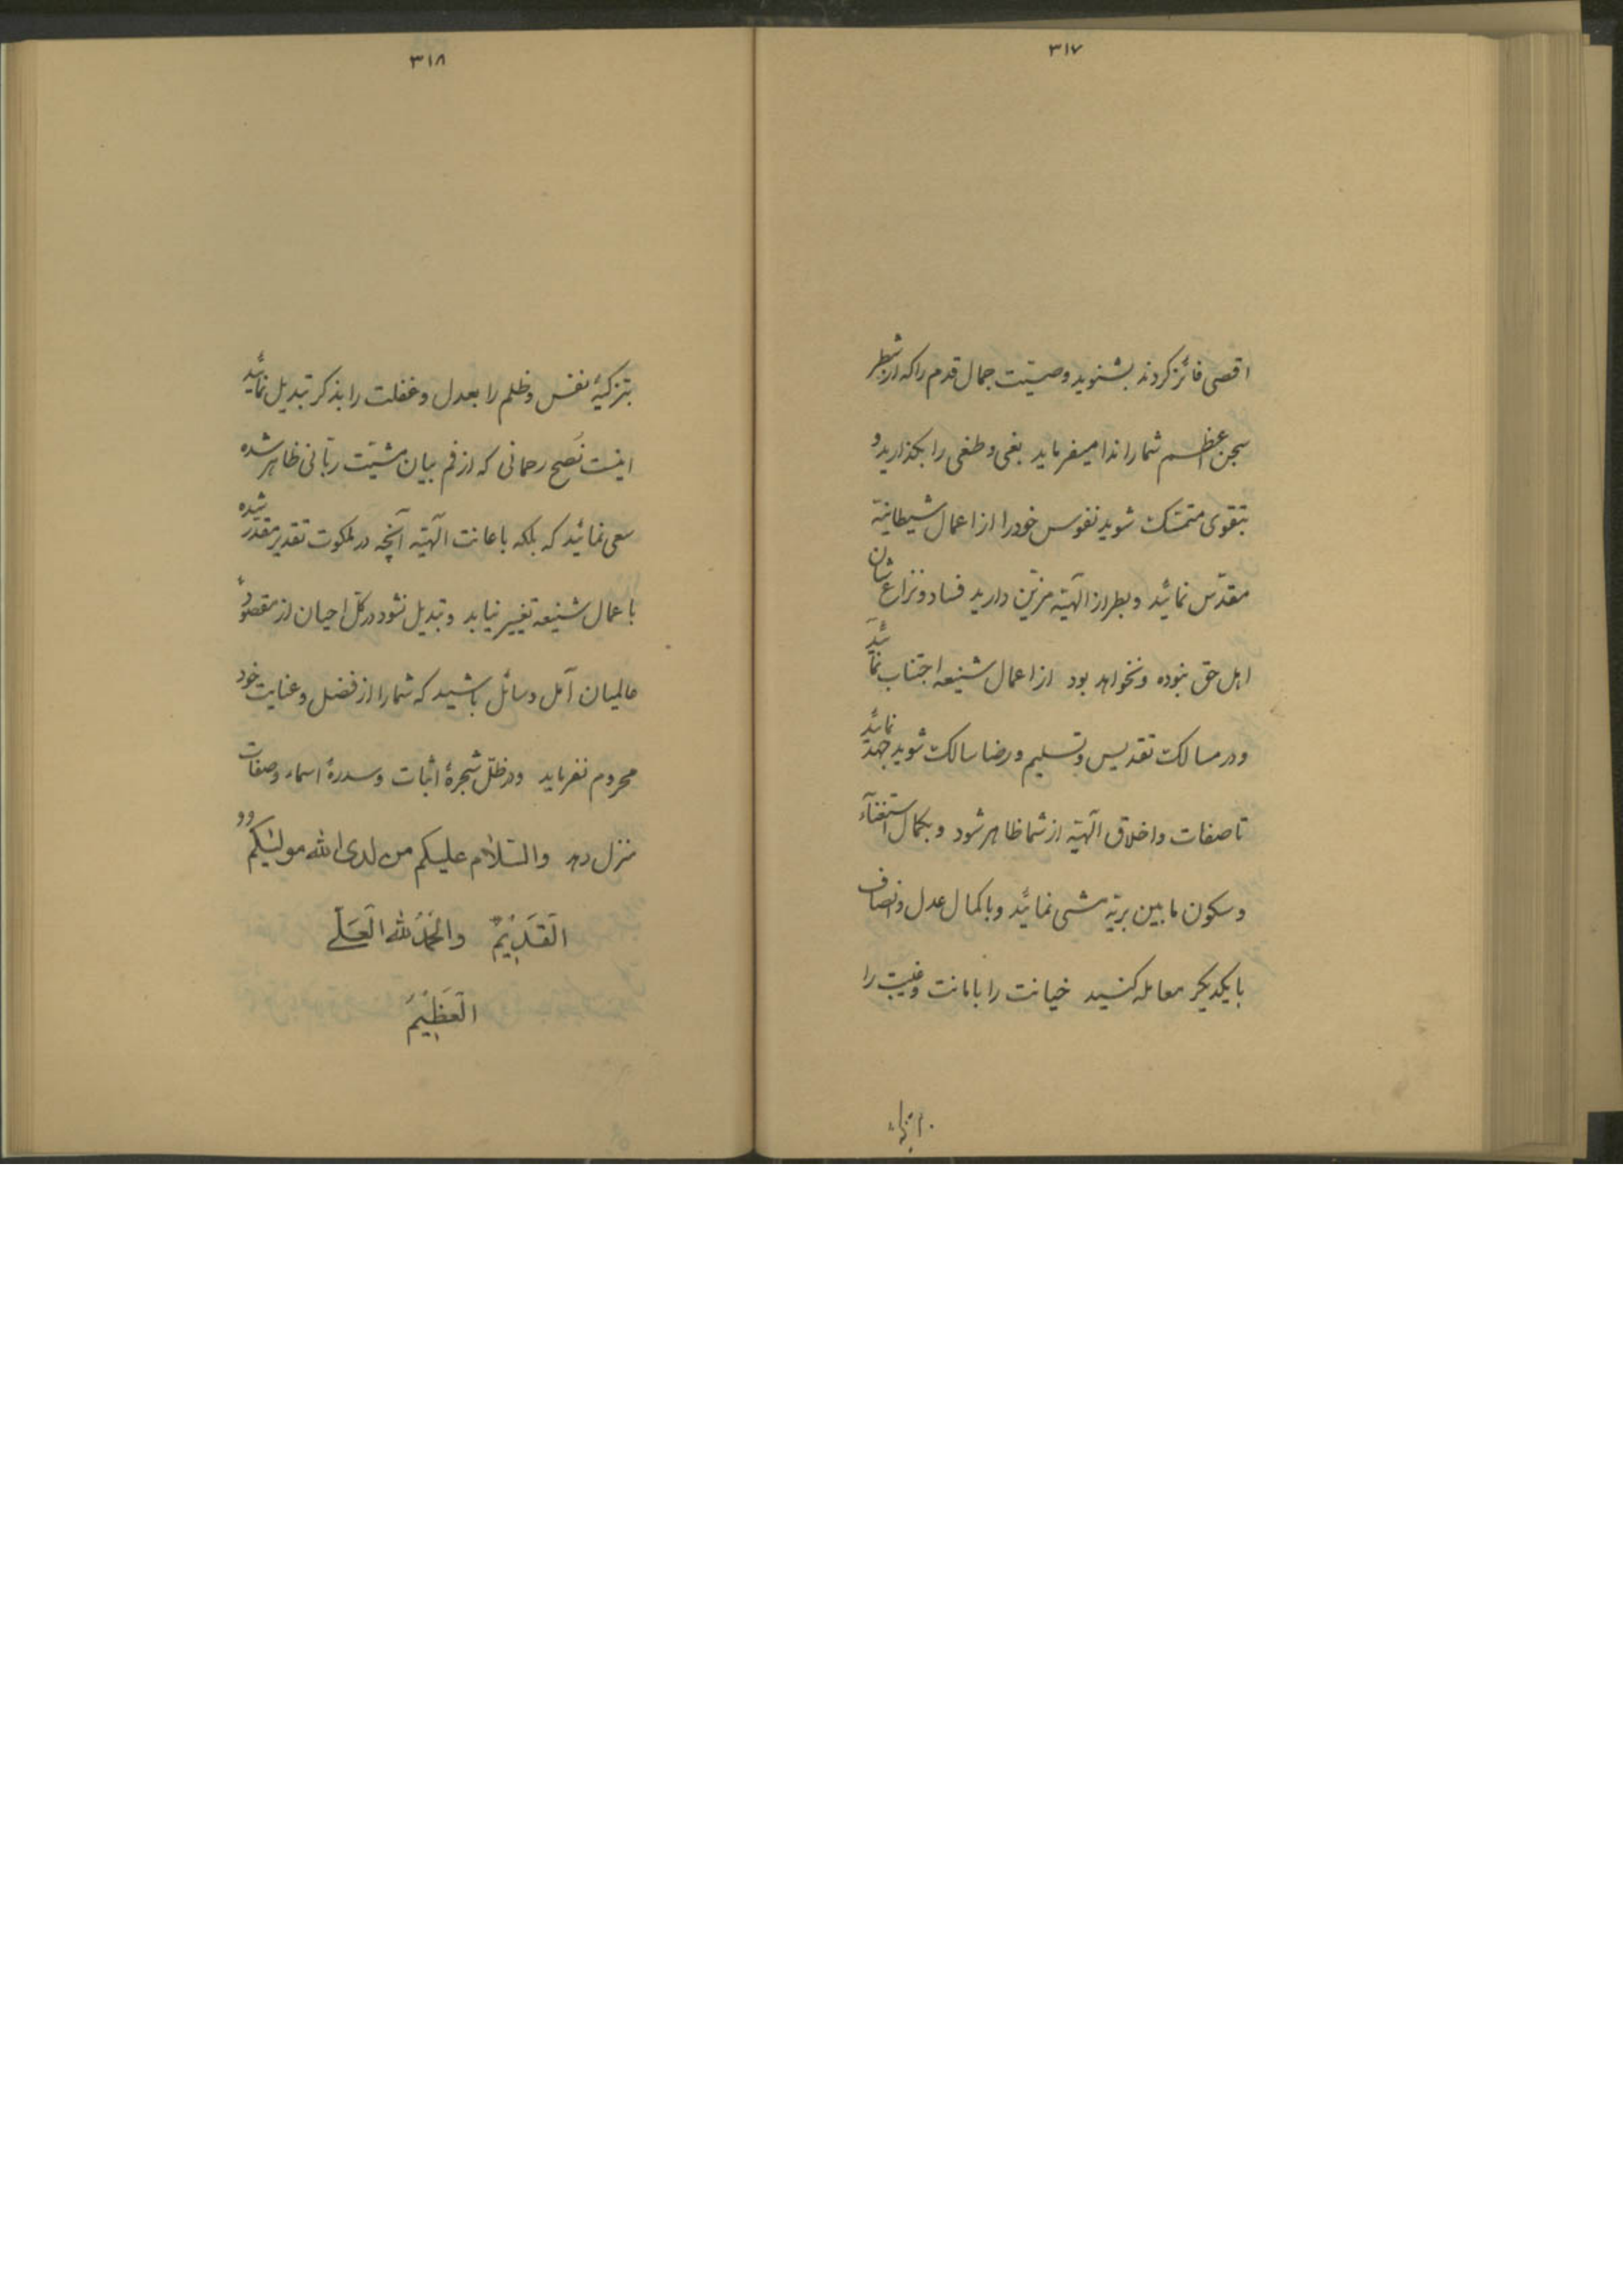 ٣١٧
اقصی فائز کردند بشنوید وصیّت جمال قدم را که از شطر
سجن اعظم شما را ندا میفرماید بغی و طغی را بگذارید و
بتقوی متمسّک شوید نفوس خود را از اعمال شیطانیّه
مقدّس نمائید و بطراز الهیّه مزیّن دارید فساد و نزاع شان
اهل حق نبوده و نخواهد بود از اعمال شنیعه اجتناب نمائید
و در مسالک تقدیس و تسلیم و رضا سالک شوید جهد نمائید
تا صفات و اخلاق الهیّه از شما ظاهر شود و بکمال استغنآء
و سکون ما بین بریّه مشی نمائید و با کمال عدل و انصاف
با یکدیگر معامله کنید خیانت را بامانت و غیبت را
٣١٨
بتزکیهٔ نفس و ظلم را بعدل و غفلت را بذکر تبدیل نمائید
اینست نصح رحمانی که از فم بیان مشیّت ربّانی ظاهر شده
سعی نمائید که بلکه باعانت الهیّه آنچه در ملکوت تقدیر مقدّر شده
باعمال شنیعه تغییر نیابد و تبدیل نشود در کلّ احیان از مقصود
عالمیان آمل و سائل باشید که شما را از فضل و عنایت خود
محروم نفرماید و در ظلّ شجرهٔ اثبات و سدرهٔ اسماء و صفات
منزل دهد والسّلام علیکم من لدی الله مولیٰکم
القَدِیْم والحَمْدُ لله العَلَے
العَظِیْم